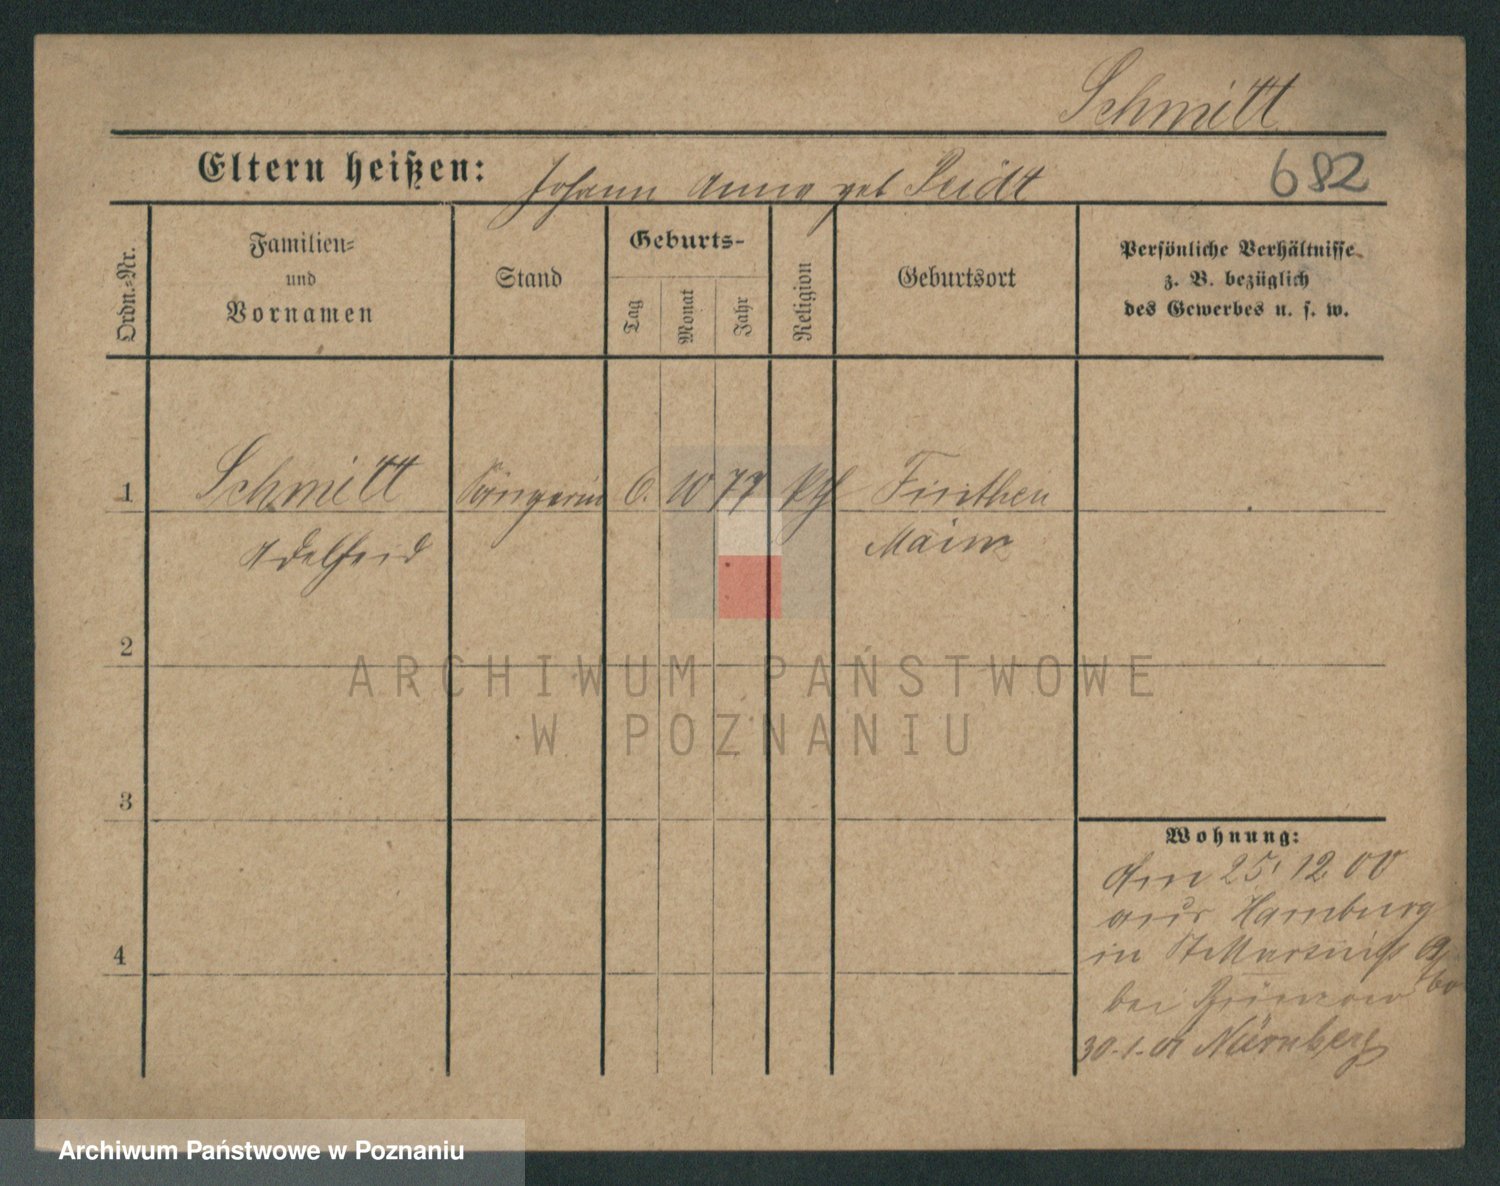 Schmitt
Eltern heißen: Johann Anna geb Reidt
682
Ordn.-Nr.
Familien-
und
Vornamen
Stand
Geburts-
Tag
Monat
Jahr
Religion
Geburtsort
Persönliche Verhältnisse
z. B. bezüglich
des Gewerbes u. s. w.
1
Schmitt Sängerin 6. 10 77 kth Finthen
Adelheid Mainz
2
ARCHIWUM PAŃSTWOWE
W POZNANIU
3
Wohnung:
Am 25/12 00
aus Hamburg
4
in St Martinstr
bei
30.1.01 Nürnberg
Archiwum Państwowe w Poznaniu